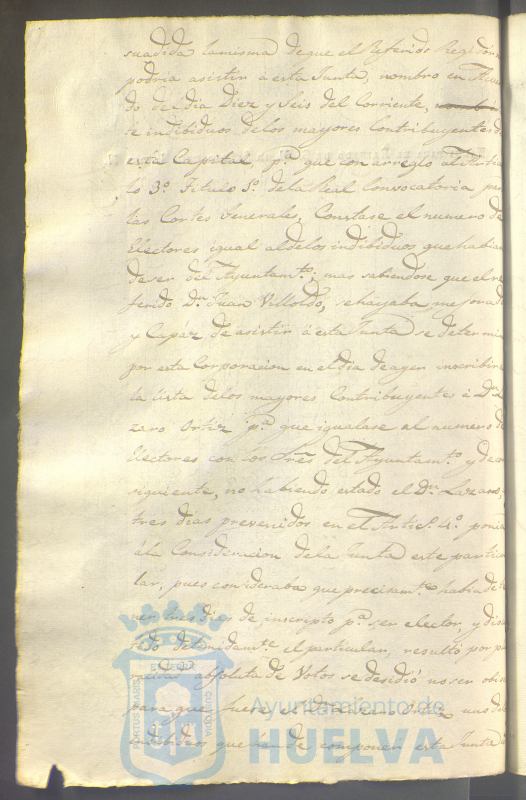 suadida la misma de que el Referido Regidor n
podria asistir á esta Junta, nombro en Acuer
do del dia Diez y Seis del Corriente,
te indibiduos de los mayores Contribuyentes d
esta Capital pª que con arreglo al Artic
lo 3º Titulo 1º de la Real Convocatoria pa
las Cortes Generales, Constase el numero de
Electores igual al de los indibiduos que habian
de ser del Ayuntamtº; mas sabiendose que el re
ferido Dn Juan Villoldo, se hayaba mejorado
y Capaz de asistir á esta Junta se determi
por esta Corporacion en el dia de ayer inscribir
la lista de los mayores Contribuyentes á Dn La
zaro Ortiz pª que igualase al numero d
Electores con los Sres del Ayuntamtº y de con
siguiente, no habiendo estado el Dn Lazaro
tres dias prevenidos en el Articº 4º ponia
á la Consideracion de la Junta este particu
lar, pues consideraba que precisamte habia de
tres dias de inscripto pª ser elector, y discu
tido detenidamte el particular, resultó por
absoluta de Votos se desidió no ser obice
para que fuere el Dn Lazaro Ortiz uno de
indibiduos que han de componer esta Junta
Ayuntamiento de
HUELVA
PORTUS MARIS